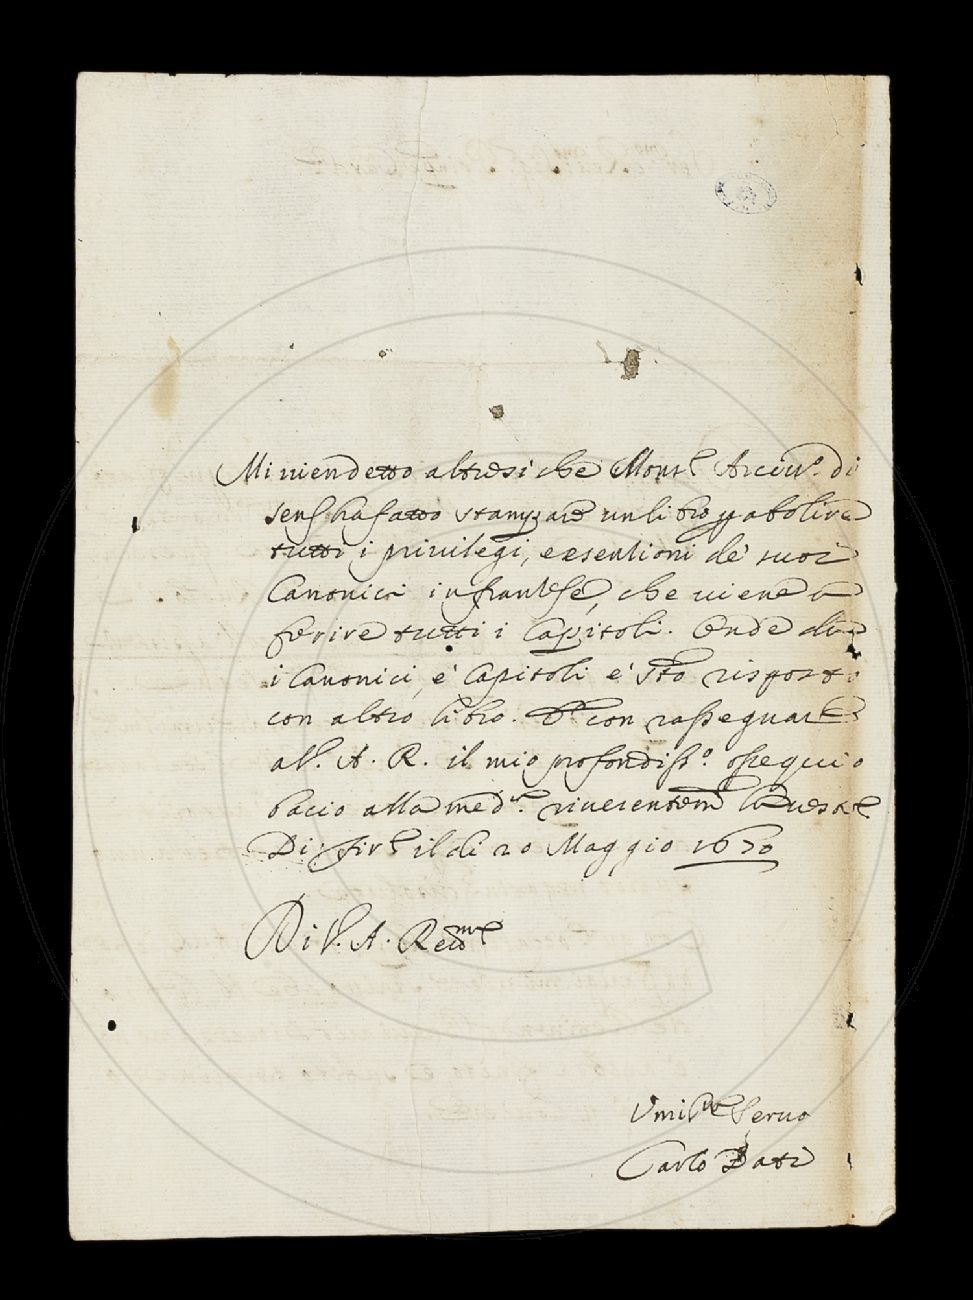 Mi vien detto altresi che Mons.re Arciv.o di
sens ha fatto stampare un libro p abolire
tutti i privilegi, e esentioni de' suoi
Canonici in franzese, che viene a
ferire tutti i Capitoli. Onde da
i Canonici, e Capitoli è sto risposto
con altro libro. E con rassegnare
a V. A. R. il mio profondiss.o ossequio
bacio alla med.a riverentem.e la vesta
Di fir.e il di 20 Maggio 1670
Di V. A. Rev.ma
Umil.mo Servo
Carlo Dati